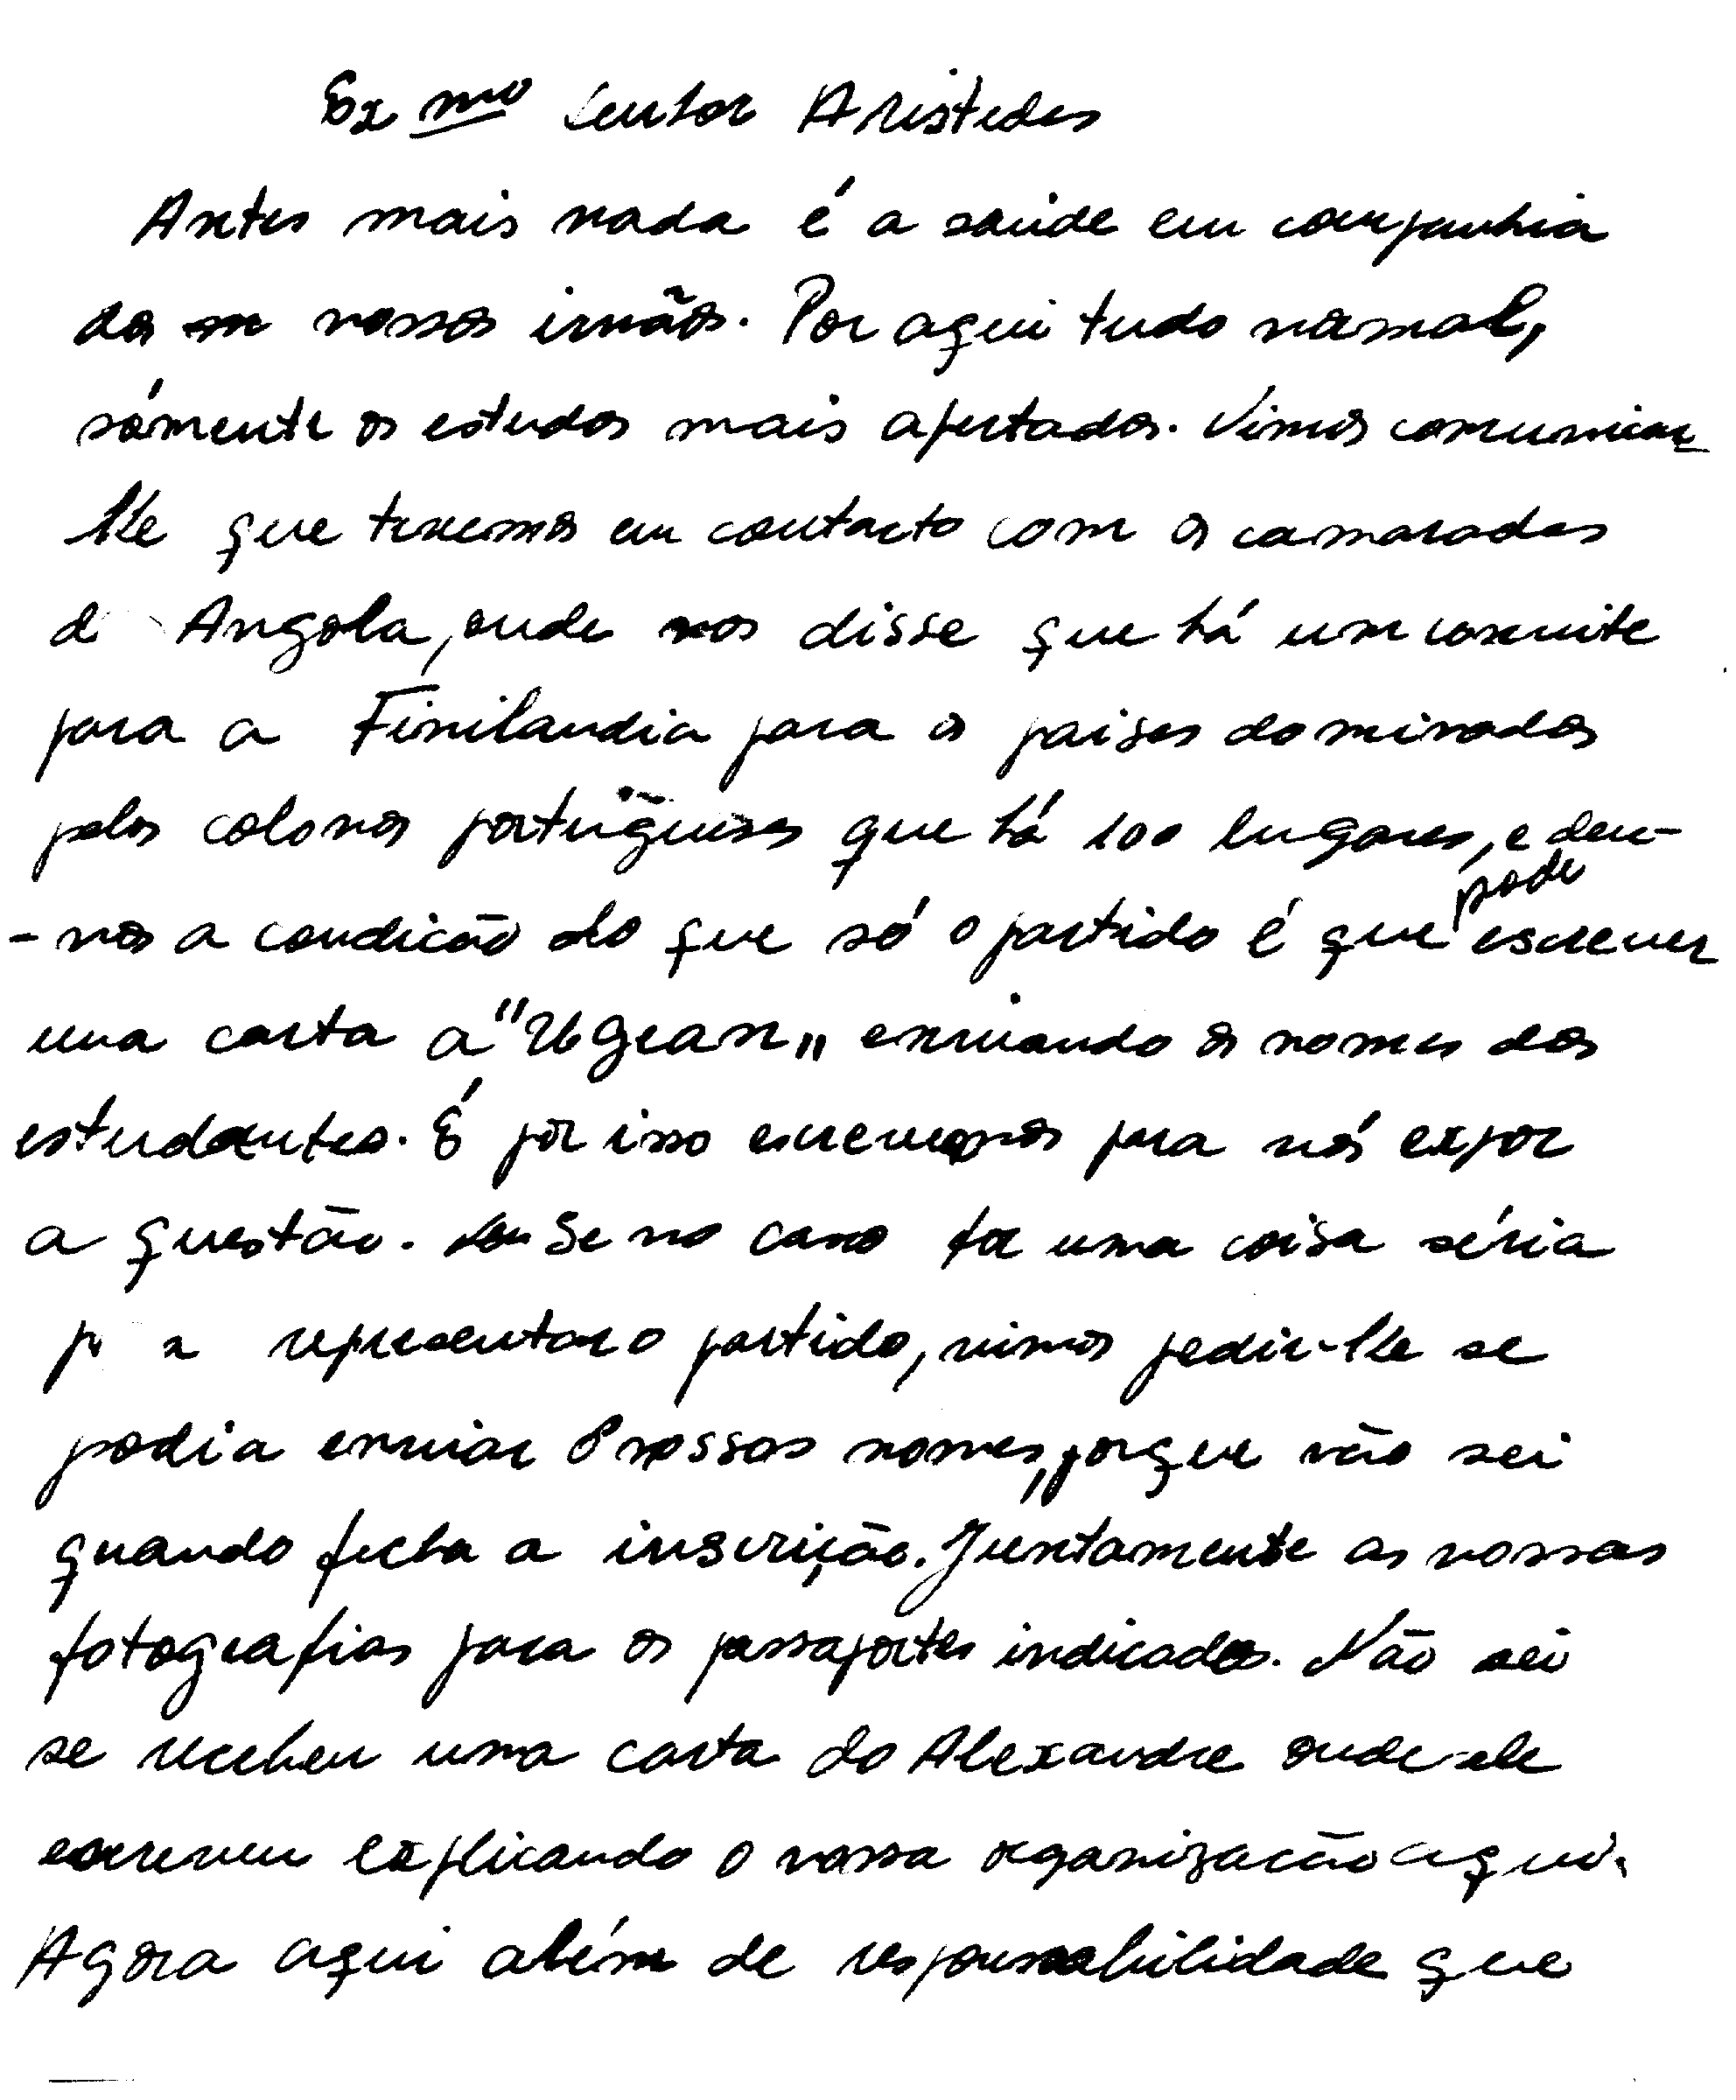 Exmo Senhor Aristedes
Antes mais nada é a saúde em companhia
dos nossos irmãos. Por aqui tudo normal,
sómente os estudos mais apertados. Vimos comunicar
lhe que tivemos em contacto com os camaradas
d Angola, onde nos disse que há um convite
para a Finilandia para os paises dominados
pelos colonos portugueses que há 100 lugares, e deu-
-nos a condicão do que só o partido é que pode escrever
uma carta a "Ugean" enviando os nomes dos
estudantes. É por isso escrevemos para nós expor
a questão. Se no caso for uma coisa séria
p a representar o partido, vimos pedir-lhe se
podia enviar os nossos nomes, porque não sei
quando fecha a inscrição. Juntamente as nossas
fotografias para os passaportes indicados. Não sei
se recebeu uma carta do Alexandre onde ele
escreveu explicando o nossa organizacão aqui.
Agora aqui além de responsabilidade que